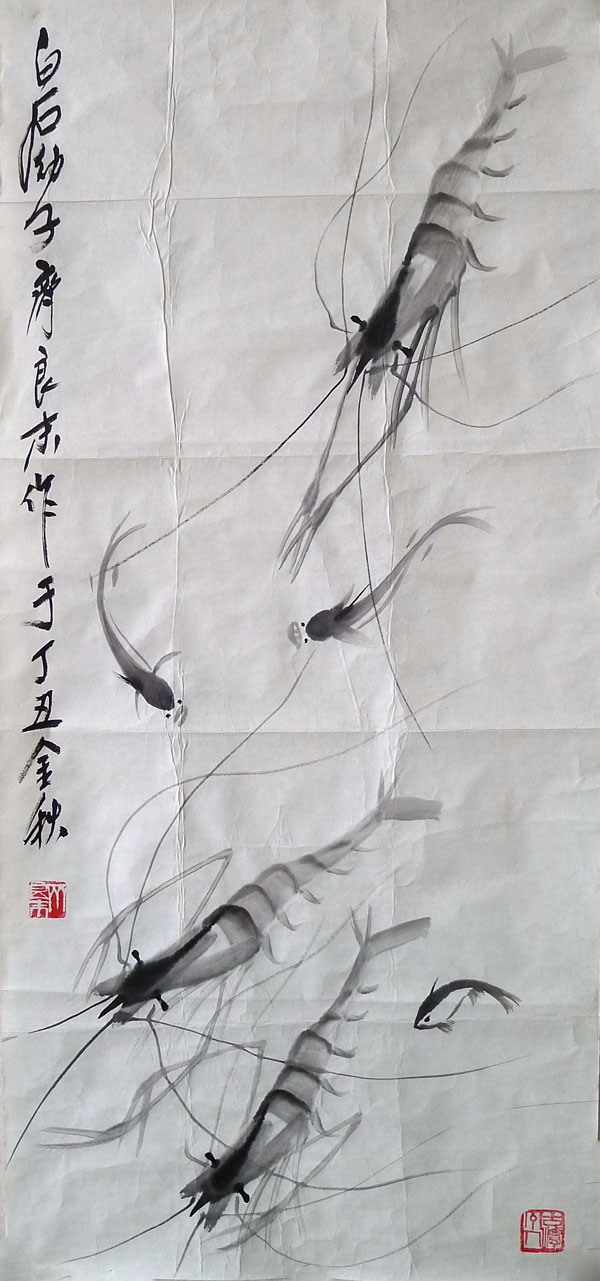 白石幼子齊良末作于丁丑金秋